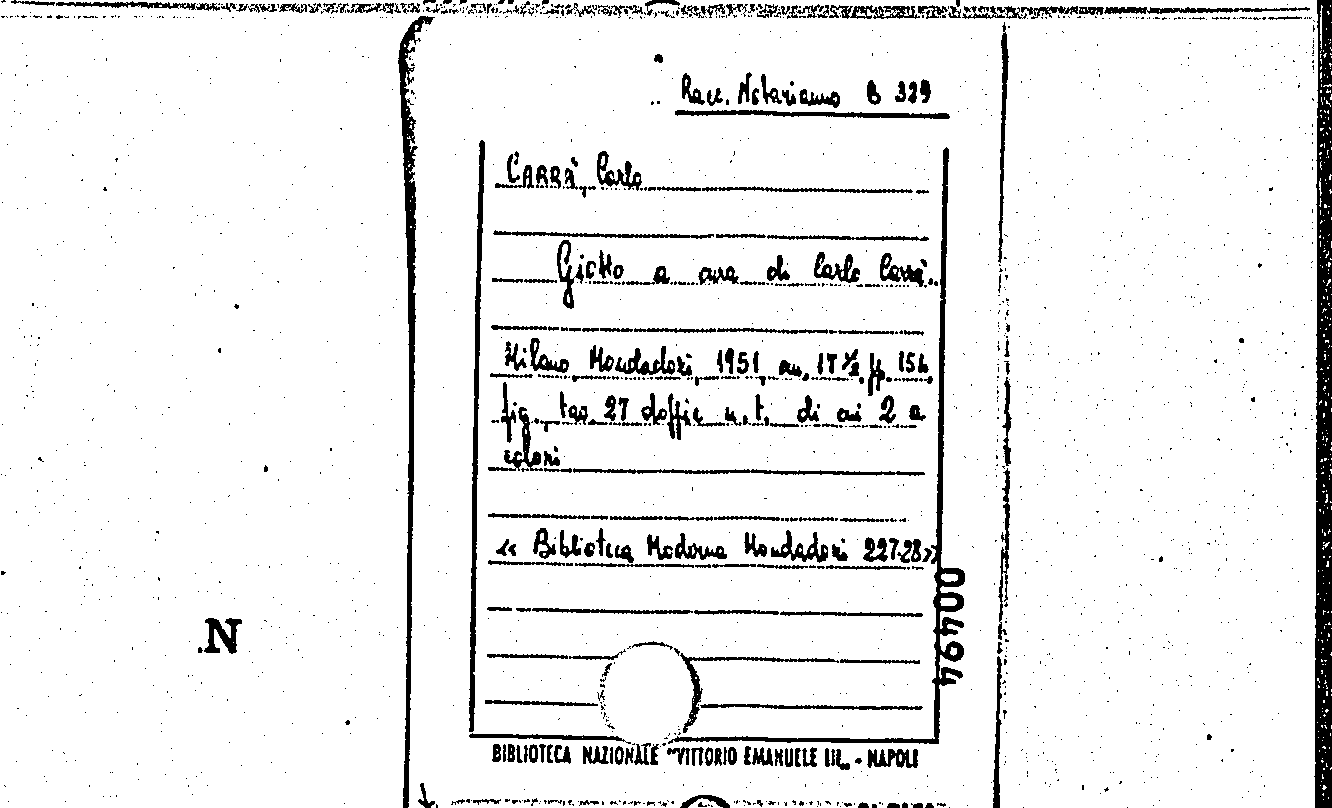 Racc. Notarianno B 329
CARRÀ, Carlo
Giotto a cura di Carlo Carrà.
Milano, Mondadori, 1951, cm. 17 ½, pp. 154,
fig., tav. 27 doppie n.t. di cui 2 a
colori
« Biblioteca Moderna Mondadori 227-28»
00494
N
BIBLIOTECA NAZIONALE "VITTORIO EMANUELE III„ - NAPOLI